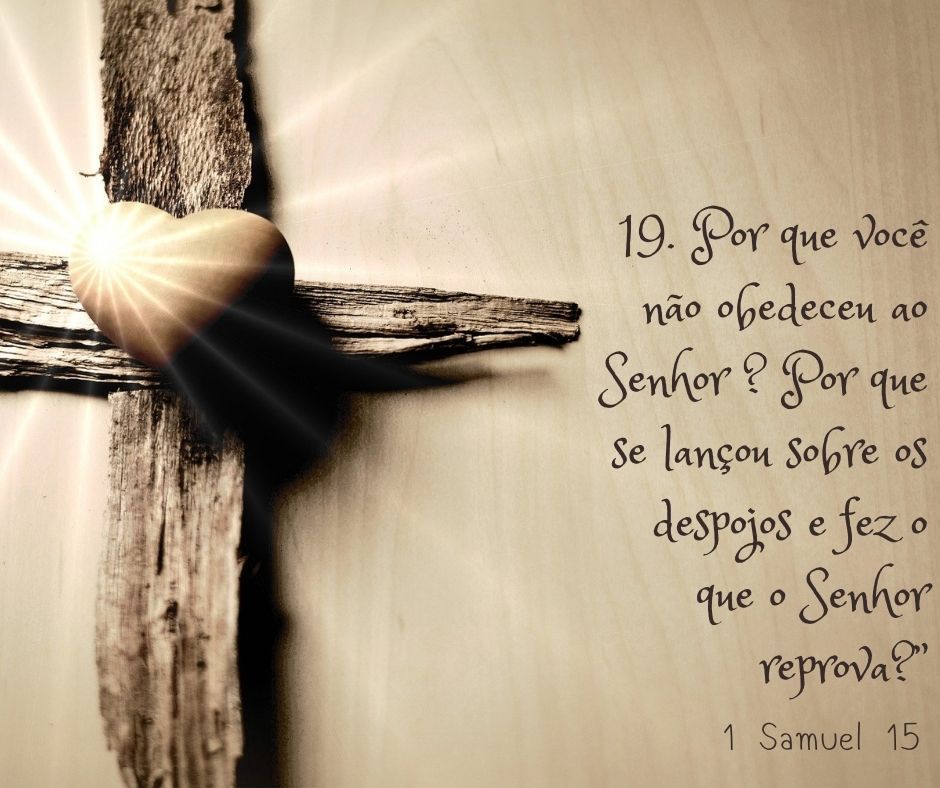 19. Por que você
não obedeceu ao
Senhor ? Por que
se lançou sobre os
despojos e fez o
que o Senhor
reprova?”
1 Samuel 15